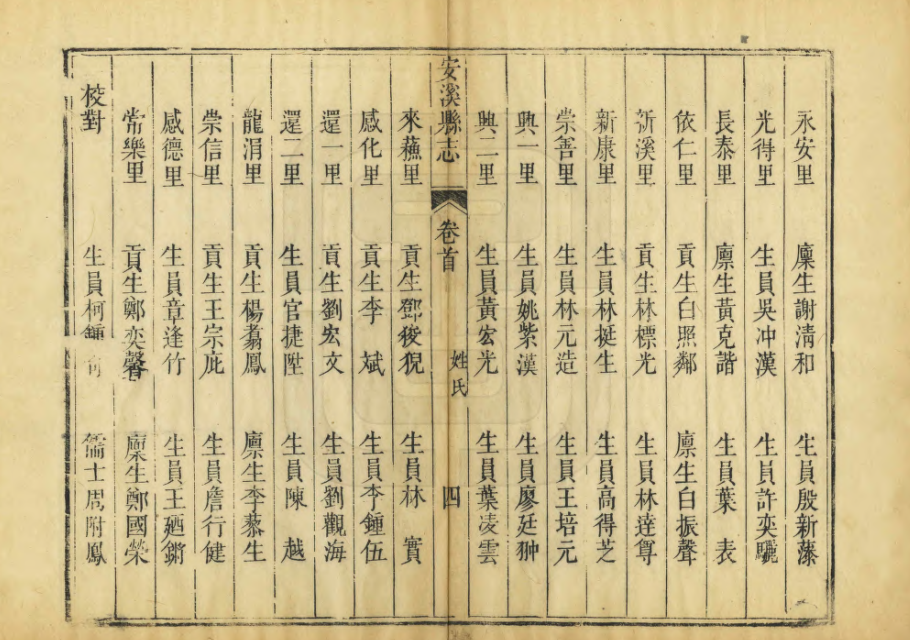 永安里 廩生謝清和 生員殷新藻
光得里 生員吳冲漢 生員許奕驪
長泰里 廩生黃克諧 生員葉 表
依仁里 貢生白照鄰 廩生白振聲
新溪里 貢生林標光 生員林達尊
新康里 生員林挺生 生員高得芝
崇善里 生員林元造 生員王培元
興一里 生員姚紫漢 生員廖廷翀
興二里 生員黃宏光 生員葉凌雲
安溪縣志 卷首 姓氏 四
來蘓里 貢生鄧 猊 生員林 實
感化里 貢生李 斌 生員李鍾伍
還一里 貢生劉宏文 生員劉觀海
還二里 生員官捷陞 生員陳 越
龍涓里 貢生楊翥鳳 廩生李藜生
崇信里 貢生王宗庇 生員詹行健
感德里 生員章逢竹 生員王廼鏘
常樂里 貢生鄭奕馨 廩生鄭國榮
校對 生員柯鍾 儒士周附鳳